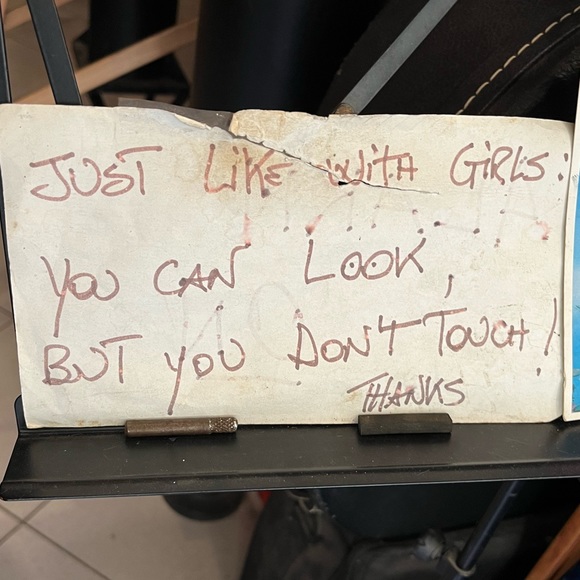 JUST LIKE WITH GIRLS:
YOU CAN LOOK,
BUT YOU DON'T TOUCH!
THANKS